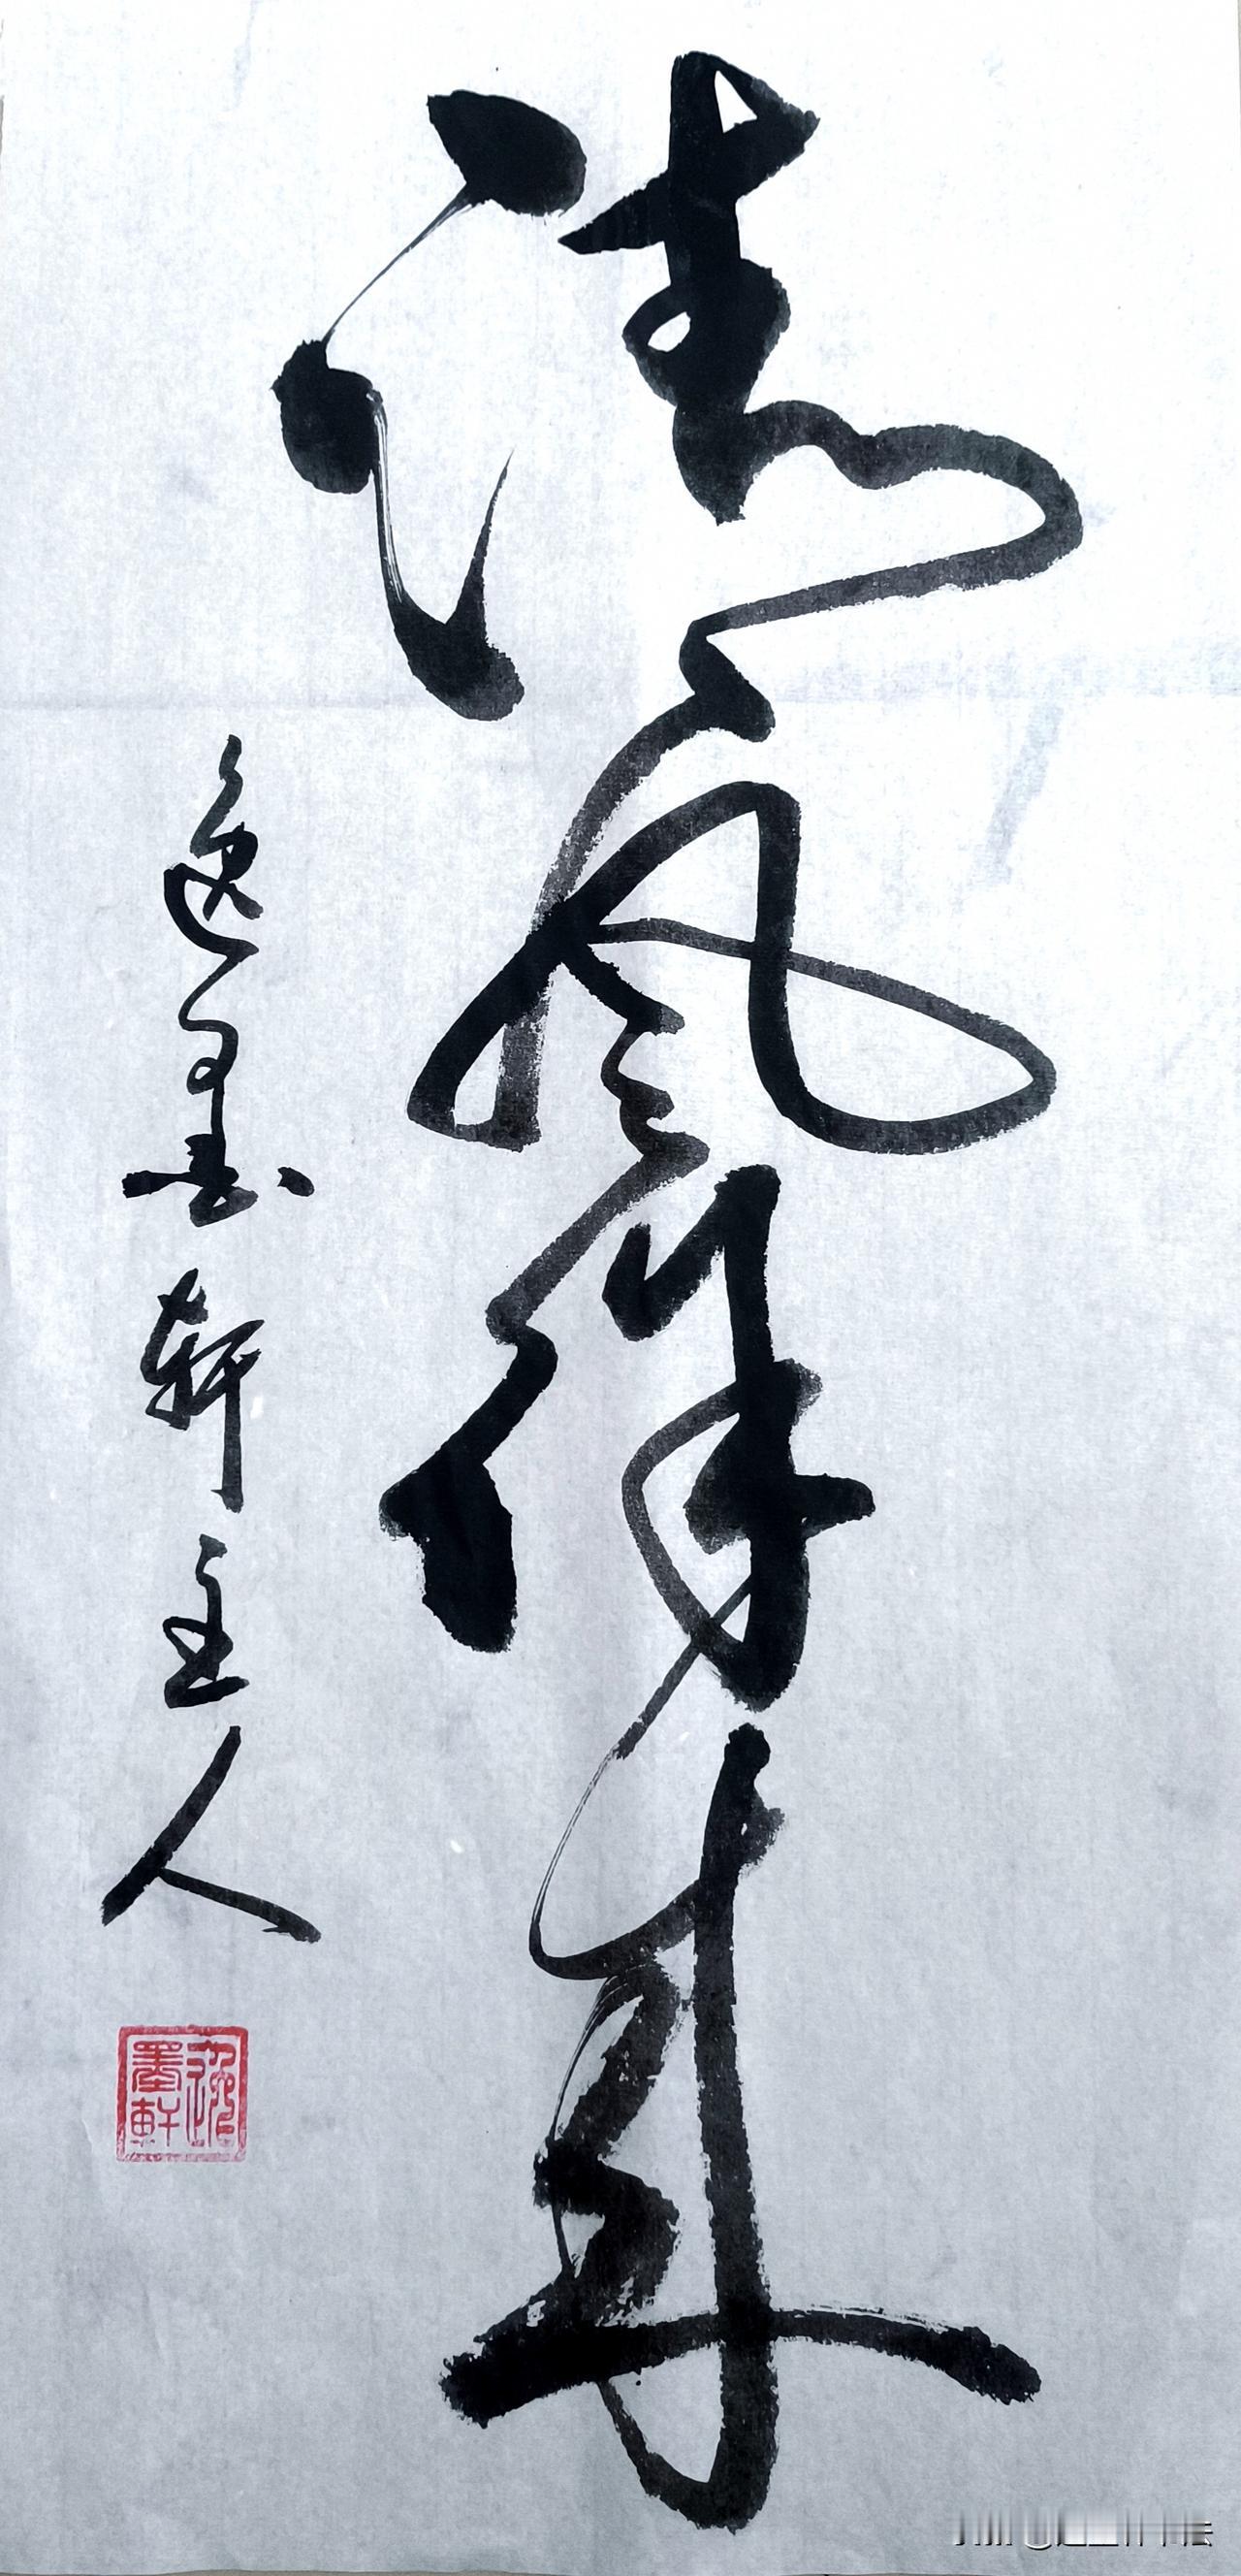 清风徐来
逸墨轩主人
逸墨軒